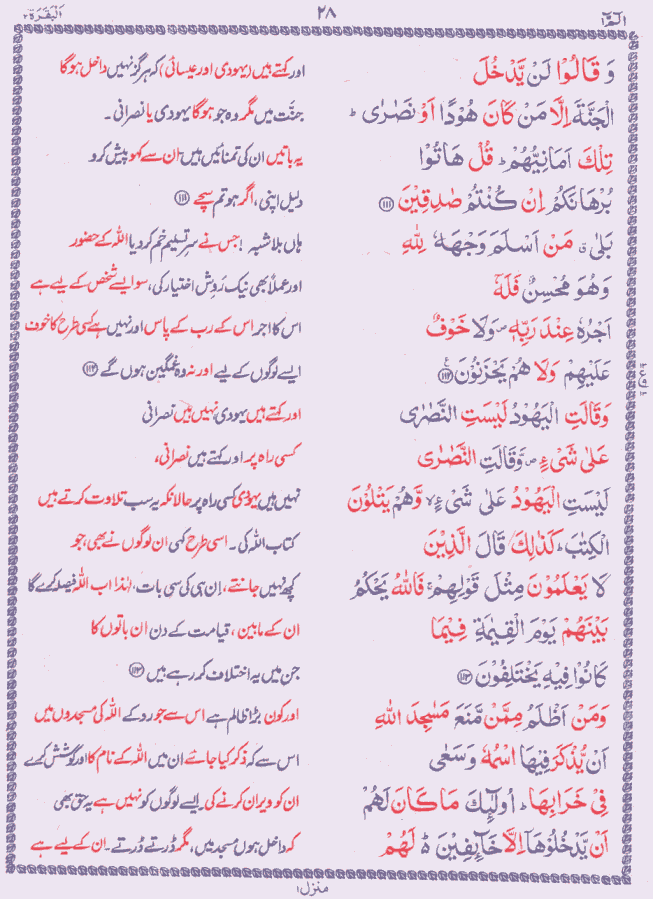 الٓمّٓ ۲۸ اَلْبَقَرَة ۲
وَ قَالُوْا لَنْ یَّدْخُلَ اور کہتے ہیں (یہودی اور عیسائی) کہ ہرگز نہیں داخل ہوگا
الْجَنَّةَ اِلَّا مَنْ كَانَ هُوْدًا اَوْ نَصٰرٰی ؕ جنّت میں مگر وہ جو ہوگا یہودی یا نصرانی ۔
تِلْكَ اَمَانِیُّهُمْ ؕ قُلْ هَاتُوْا یہ باتیں ان کی تمنائیں ہیں ان سے کہو پیش کرو
بُرْهَانَكُمْ اِنْ كُنْتُمْ صٰدِقِیْنَ ﴿۱۱۱﴾ دلیل اپنی، اگر ہو تم سچّے ﴿۱۱۱﴾
بَلٰی ۗ مَنْ اَسْلَمَ وَجْهَهٗ لِلّٰهِ ہاں بلاشبہ! جس نے سرِ تسلیم خم کر دیا اللہ کے حضور
وَهُوَ مُحْسِنٌ فَلَهٗۤ اور عملاً بھی نیک رَوِش اختیار کی، سو ایسے شخص کے لیے ہے
اَجْرُهٗ عِنْدَ رَبِّهٖ ۪ وَلَا خَوْفٌ اس کا اجر اس کے رب کے پاس اور نہیں ہے کسی طرح کا خوف
عَلَیْهِمْ وَلَا هُمْ یَحْزَنُوْنَ ﴿۱۱۲﴾ ایسے لوگوں کے لیے اور نہ وہ غمگین ہوں گے ﴿۱۱۲﴾
وَقَالَتِ الْیَهُوْدُ لَیْسَتِ النَّصٰرٰی اور کہتے ہیں یہودی نہیں ہیں نصرانی
عَلٰی شَیْءٍ ۪ وَّقَالَتِ النَّصٰرٰی کسی راہ پر اور کہتے ہیں نصرانی،
لَیْسَتِ الْیَهُوْدُ عَلٰی شَیْءٍ ۙ وَّهُمْ یَتْلُوْنَ نہیں ہیں یہودی کسی راہ پر حالانکہ یہ سب تلاوت کرتے ہیں
الْكِتٰبَ ؕ كَذٰلِكَ قَالَ الَّذِیْنَ کتاب اللہ کی ۔ اسی طرح کہی ان لوگوں نے بھی، جو
لَا یَعْلَمُوْنَ مِثْلَ قَوْلِهِمْ ۚ فَاللّٰهُ یَحْكُمُ کچھ نہیں جانتے، اِن ہی کی سی بات، لہٰذا اب اللہ فیصلہ کرے گا
بَیْنَهُمْ یَوْمَ الْقِیٰمَةِ فِیْمَا ان کے مابین، قیامت کے دن ان باتوں کا
كَانُوْا فِیْهِ یَخْتَلِفُوْنَ ﴿۱۱۳﴾ جن میں یہ اختلاف کر رہے ہیں ﴿۱۱۳﴾
وَمَنْ اَظْلَمُ مِمَّنْ مَّنَعَ مَسٰجِدَ اللّٰهِ اور کون بڑا ظالم ہے اس سے جو روکے اللہ کی مسجدوں میں
اَنْ یُّذْكَرَ فِیْهَا اسْمُهٗ وَسَعٰی اس سے کہ ذکر کیا جائے ان میں اللہ کے نام کا اور کوشش کرے
فِیْ خَرَابِهَا ؕ اُولٰٓئِكَ مَا كَانَ لَهُمْ ان کو ویران کرنے کی۔ ایسے لوگوں کو نہیں ہے یہ حق بھی
اَنْ یَّدْخُلُوْهَاۤ اِلَّا خَآئِفِیْنَ ؕ۬ لَهُمْ کہ داخل ہوں مسجد میں، مگر ڈرتے ڈرتے ۔ ان کے لیے ہے
منزل ۱